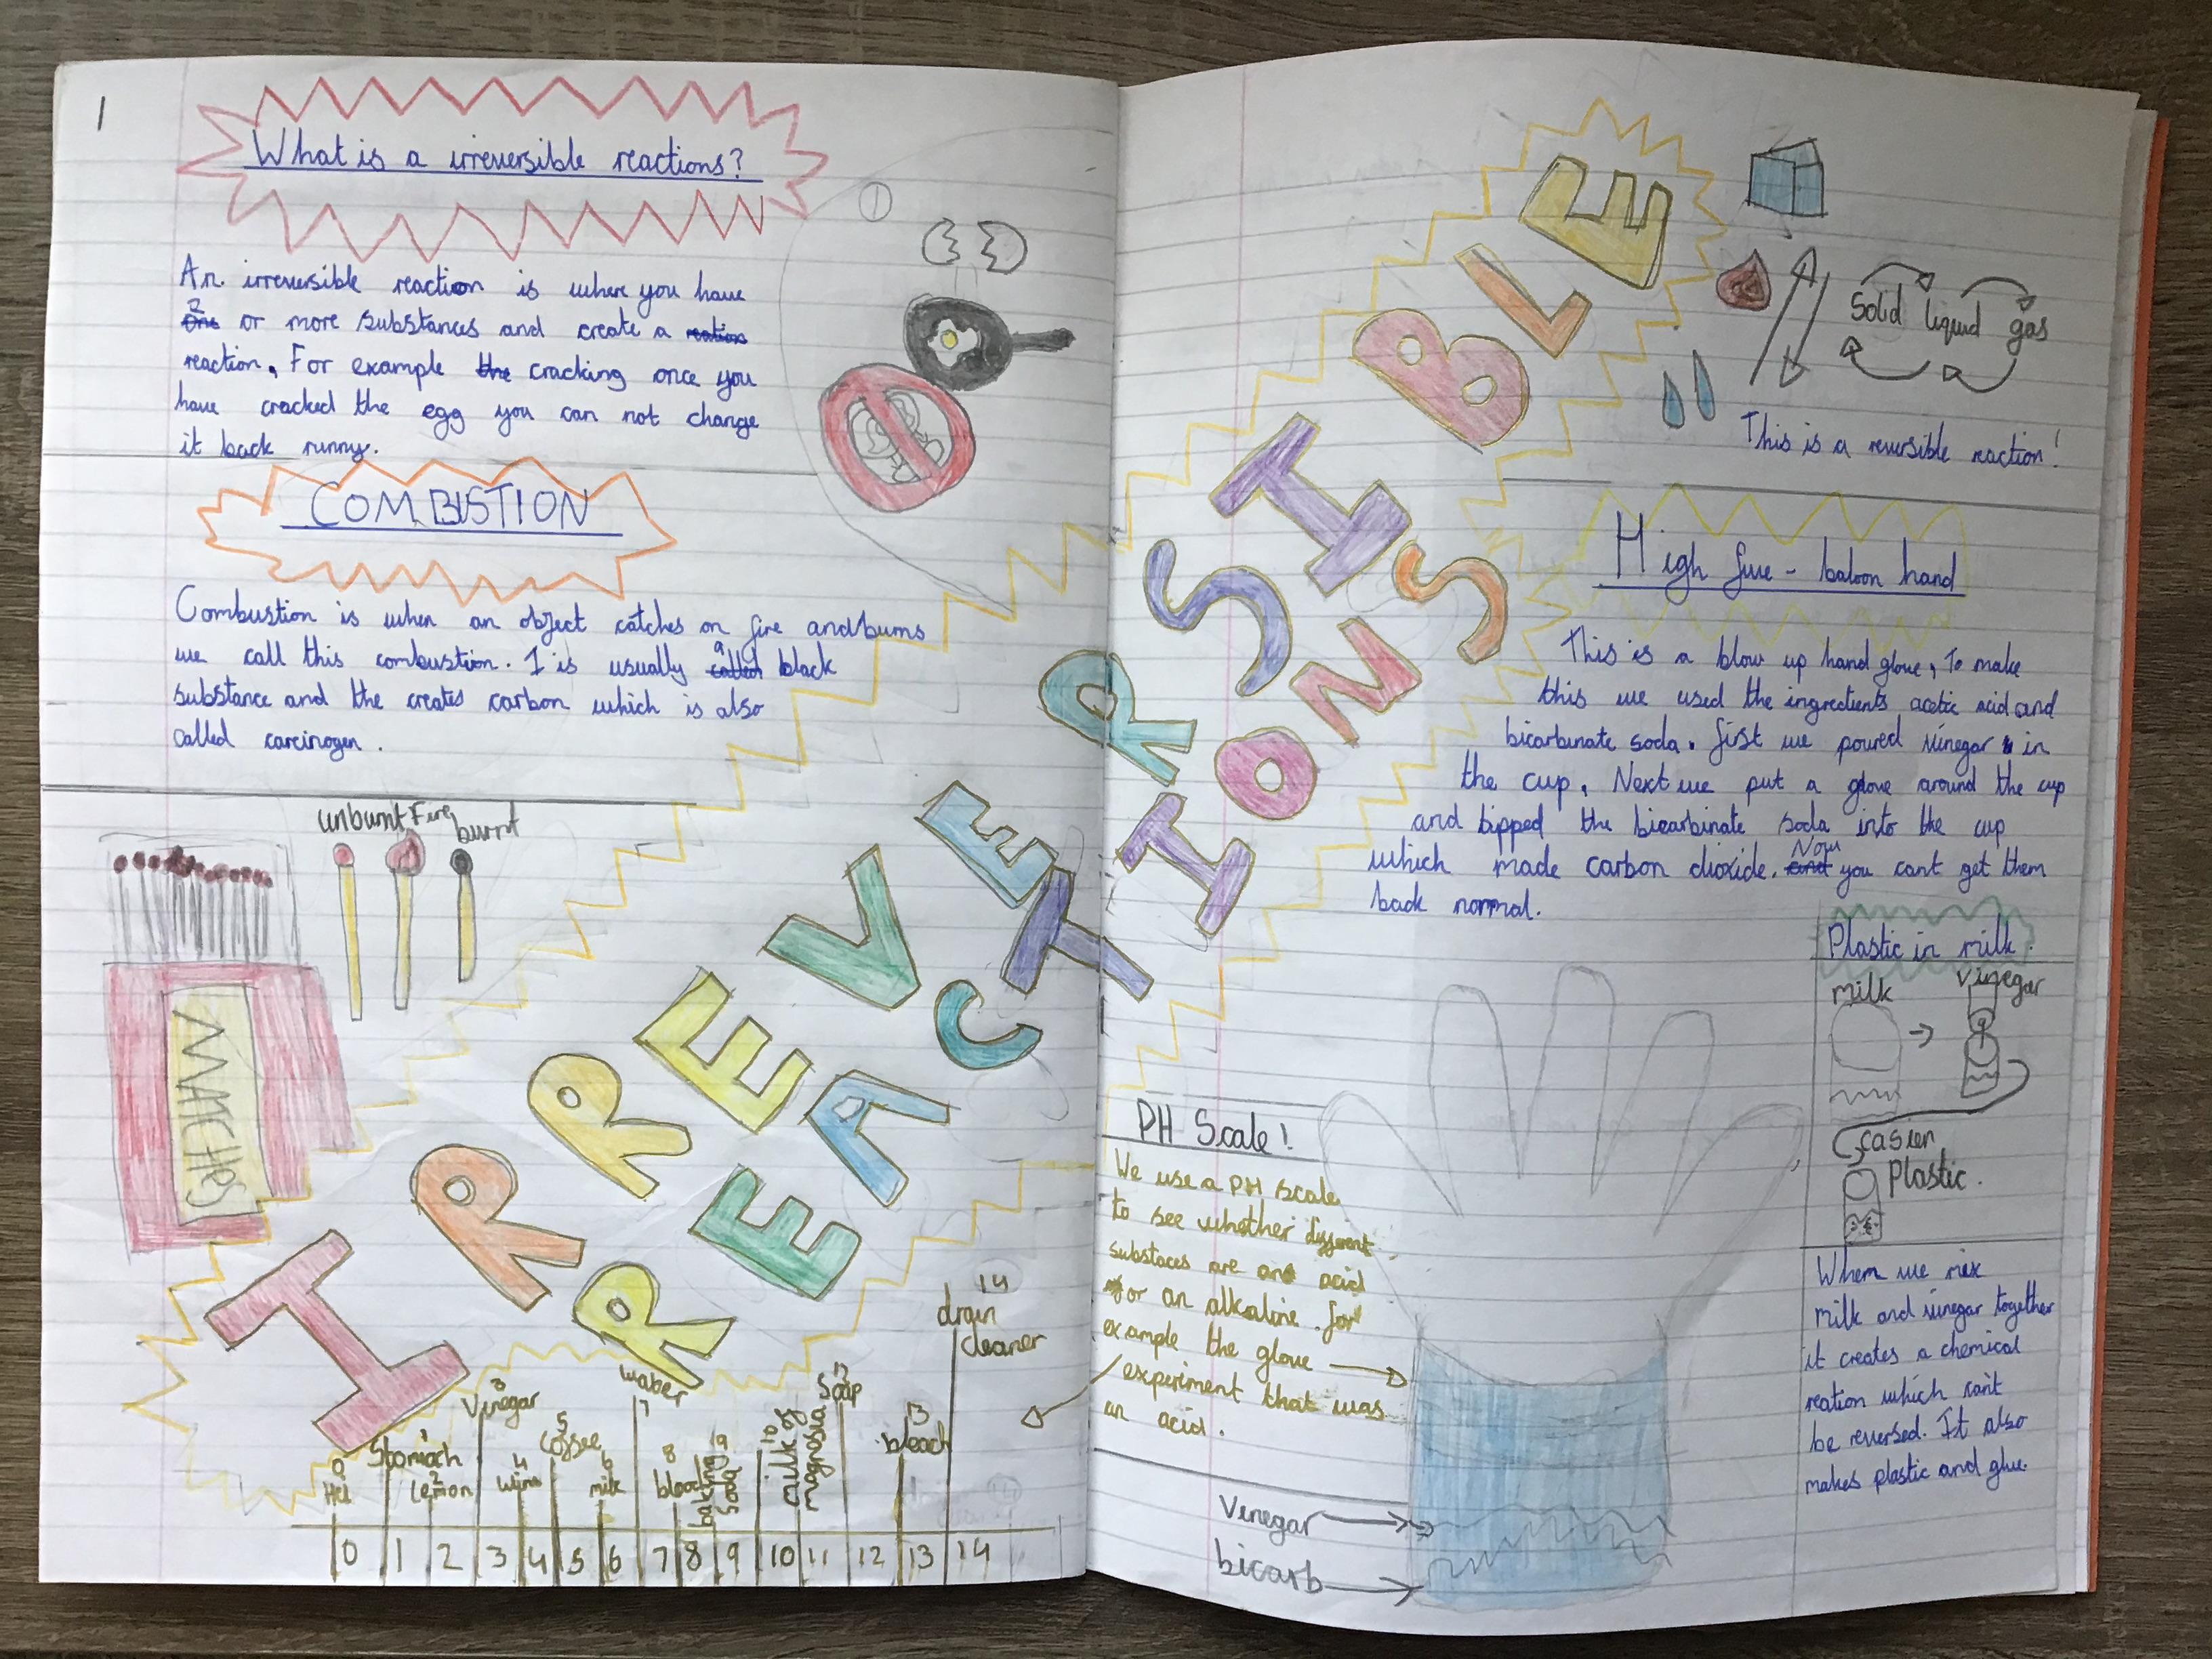 1
What is a irreversible reactions?
An irreversible reaction is where you have
2 or more substances and create a
reaction. For example cracking once you
have cracked the egg you can not change
it back runny.
1
COMBUSTION
Combustion is when an object catches on fire and burns
we call this combustion. I is usually a black
substance and the creates carbon which is also
called carcinogen.
unburnt Fire burnt
MATCHES
IRREVERSIBLE
REACTIONS
Solid liquid gas
This is a reversible reaction!
High five - baloon hand
This is a blow up hand glove, To make
this we used the ingredients acetic acid and
bicarbinate soda. First we poured vinegar in
the cup. Next we put a glove around the cup
and tipped the bicarbinate soda into the cup
which made carbon dioxide. Now you cant get them
back normal.
Plastic in milk.
milk vinegar
casien
Plastic.
When we mix
milk and vinegar together
it creates a chemical
reation which can't
be reversed. It also
makes plastic and glue.
PH Scale!
We use a PH scale
to see whether different
substaces are an acid
or an alkaline. for
example the glove
experiment that was
an acid.
Vinegar
bicarb
0 Hcl
1 Stomach
2 Lemon
3 Vinegar
4 wine
5 coffee
6 milk
7 water
8 blood
9 baking soda
10 milk of magnosia
Soap
13 bleach
14 drain cleaner
0 1 2 3 4 5 6 7 8 9 10 11 12 13 14